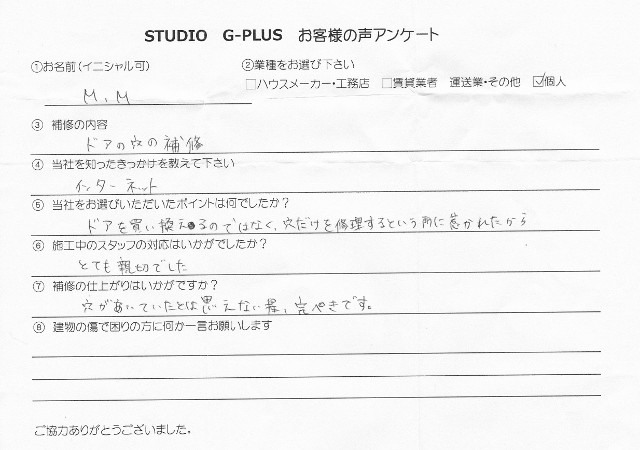 STUDIO G-PLUS お客様の声アンケート
①お名前(イニシャル可) ②業種をお選び下さい
□ハウスメーカー・工務店 □賃貸業者 運送業・その他 ☑個人
M.M
③ 補修の内容
ドアの穴の補修
④ 当社を知ったきっかけを教えて下さい
インターネット
⑤ 当社をお選びいただいたポイントは何でしたか?
ドアを買い換えるのではなく、穴だけを修理するという所に惹かれたから
⑥ 施工中のスタッフの対応はいかがでしたか?
とても親切でした
⑦ 補修の仕上がりはいかがですか?
穴があいていたとは思えない程、完ぺきです。
⑧ 建物の傷で困りの方に何か一言お願いします
ご協力ありがとうございました。